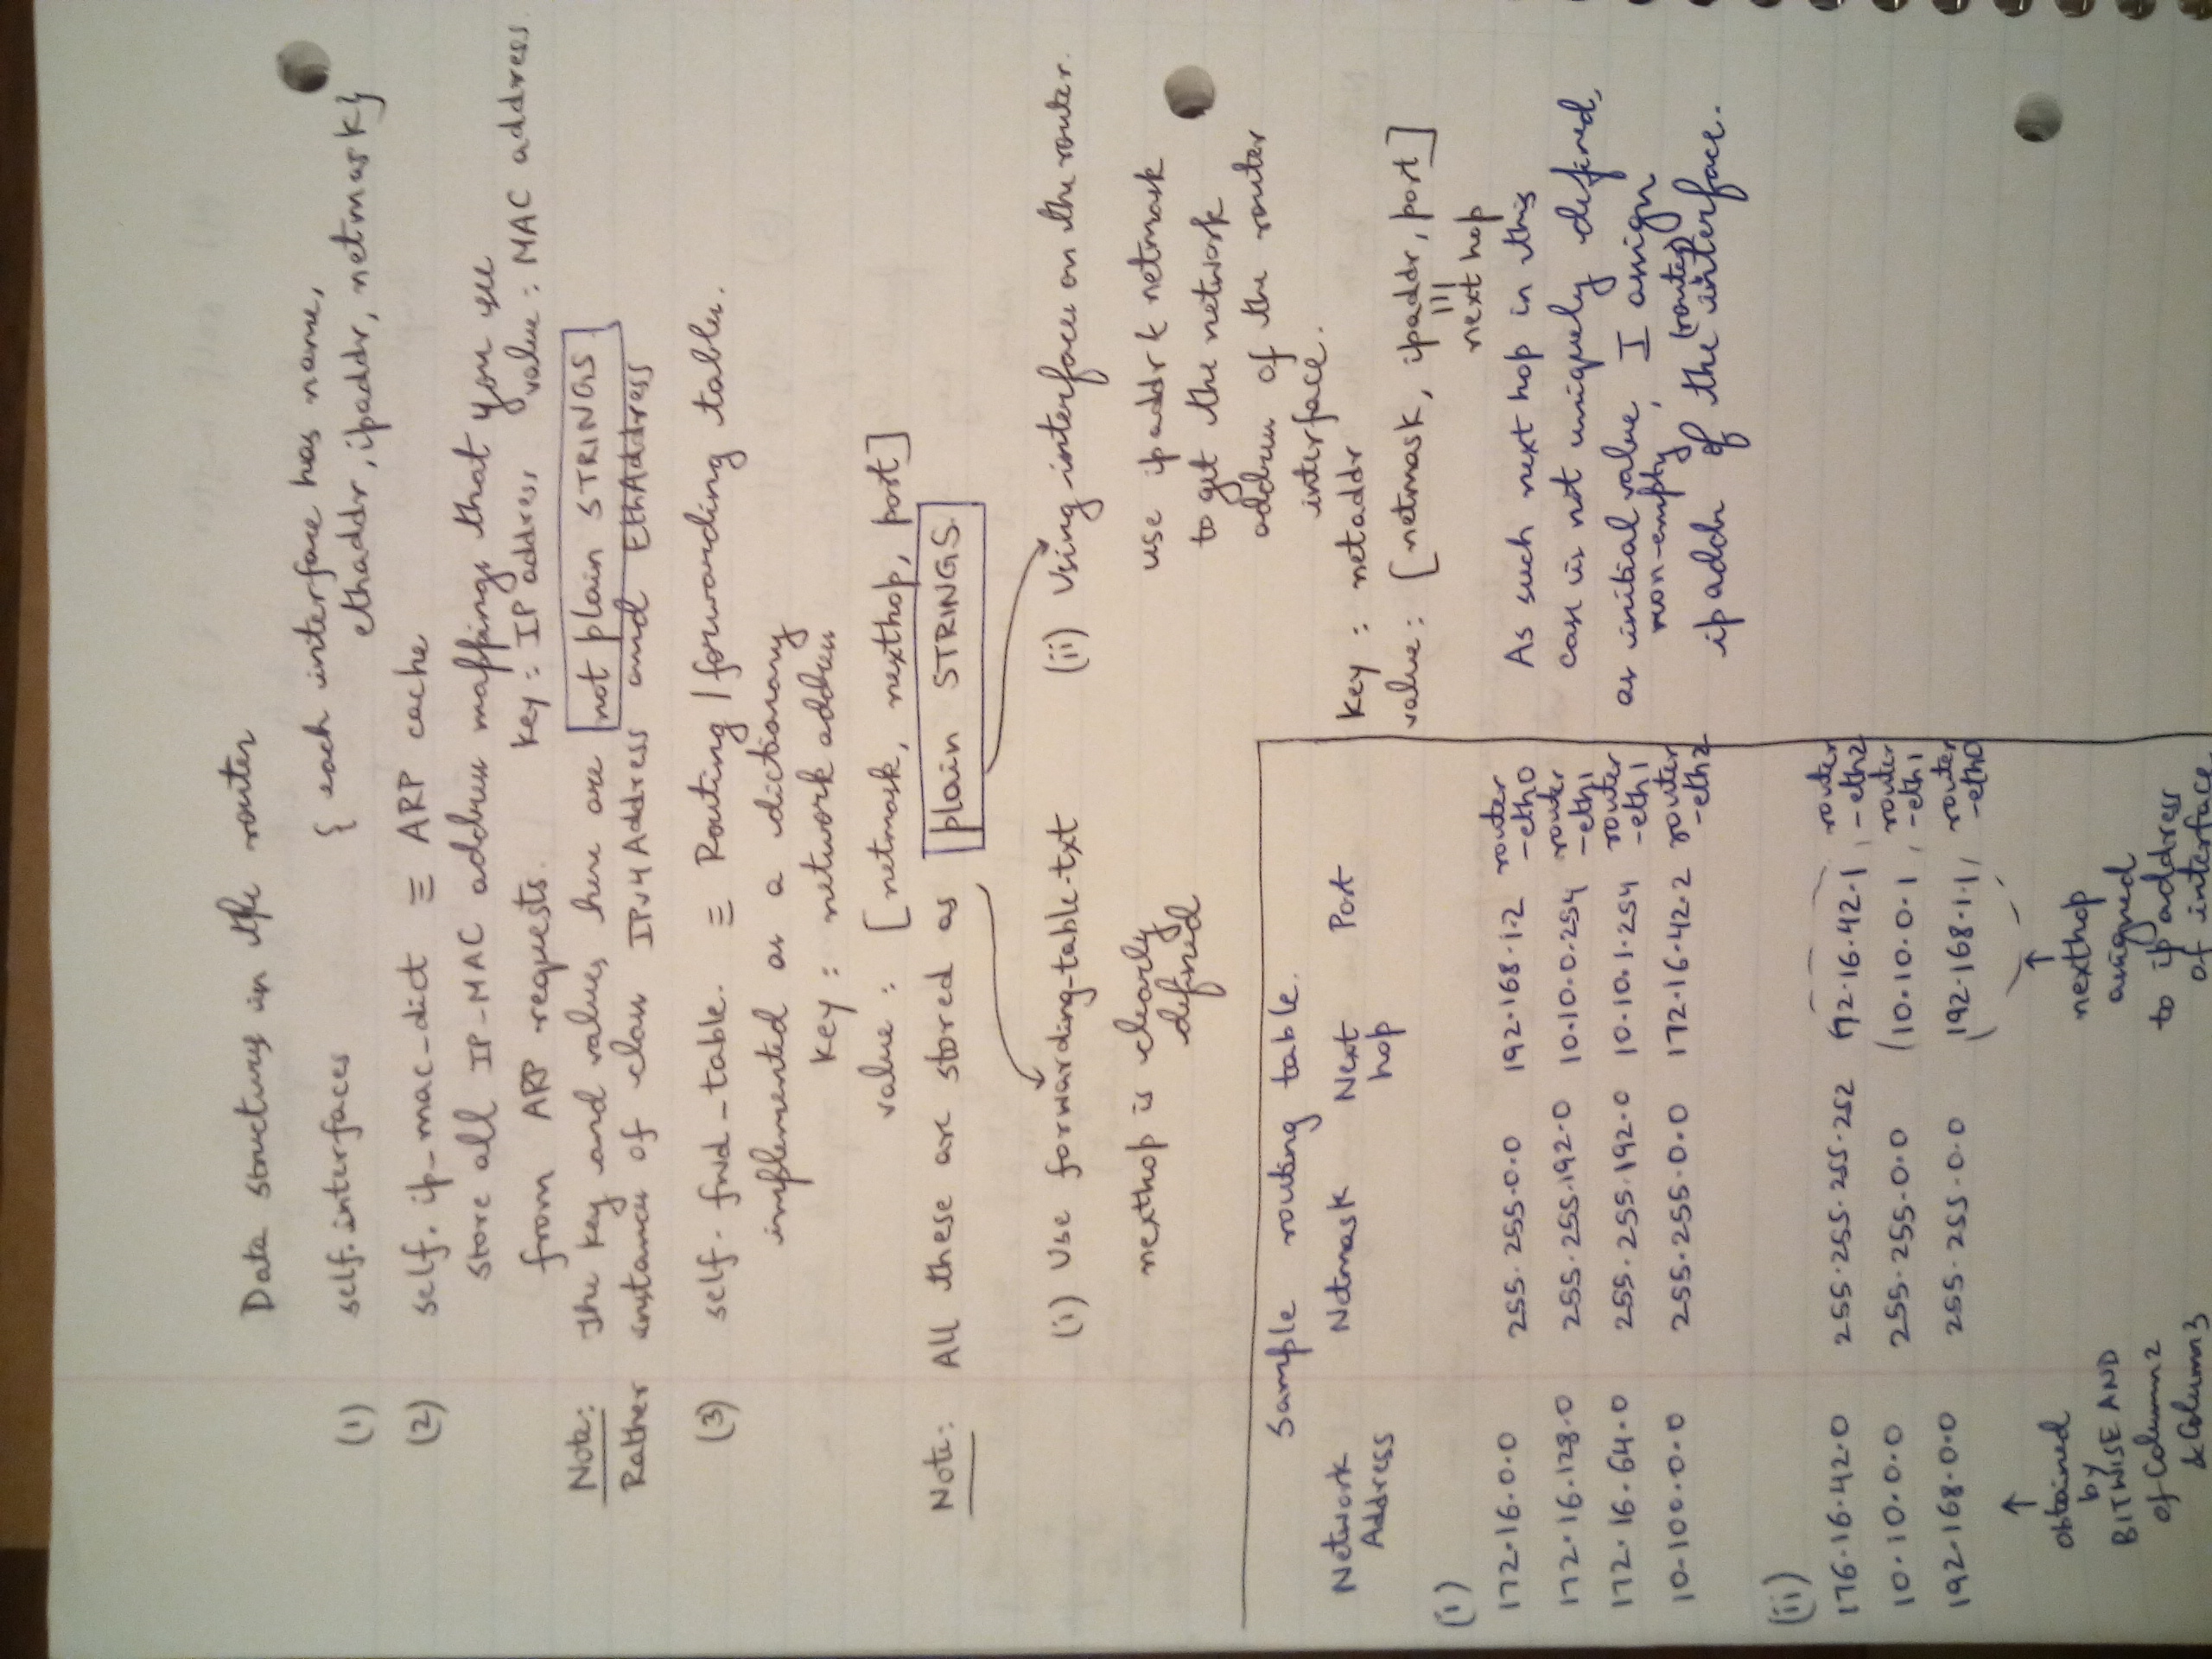 Data structures in the router
(1) self.interfaces { each interface has name,
ethaddr, ipaddr, netmask}
(2) self.ip_mac_dict ≡ ARP cache
store all IP-MAC address mappings that you see
from ARP requests. Key: IP address value: MAC address
Note: The key and values here are not plain STRINGS.
Rather instances of class IPv4Address and EthAddress
(3) self.fwd_table. ≡ Routing/forwarding table.
implemented as a dictionary
key: network address
value: [netmask, nexthop, port]
Note: All these are stored as plain STRINGS.
(i) Use forwarding-table.txt
nexthop is clearly
defined
(ii) Using interfaces on the router.
use ipaddr & netmask
to get the network
address of the router
interface.
Key: netaddr
value: [netmask, ipaddr, port]
|||
next hop
As such next hop in this
case is not uniquely defined,
as initial value, I assign
non-empty
(router)
ipaddr of the interface.
Sample routing table.
Network Netmask Next Port
Address hop
(i)
172.16.0.0 255.255.0.0 192.168.1.2 router
-eth0
172.16.128.0 255.255.192.0 10.10.0.254 router
-eth1
172.16.64.0 255.255.192.0 10.10.1.254 router
-eth1
10.100.0.0 255.255.0.0 172.16.42.2 router
-eth2
(ii)
176.16.42.0 255.255.255.252 172.16.42.1 router
-eth2
10.10.0.0 255.255.0.0 10.10.0.1 router
-eth1
192.168.0.0 255.255.0.0 192.168.1.1 router
-eth0
↑
obtained
by
BITWISE AND
of Column2
& Column3
↑
nexthop
assigned
to ip address
of interface